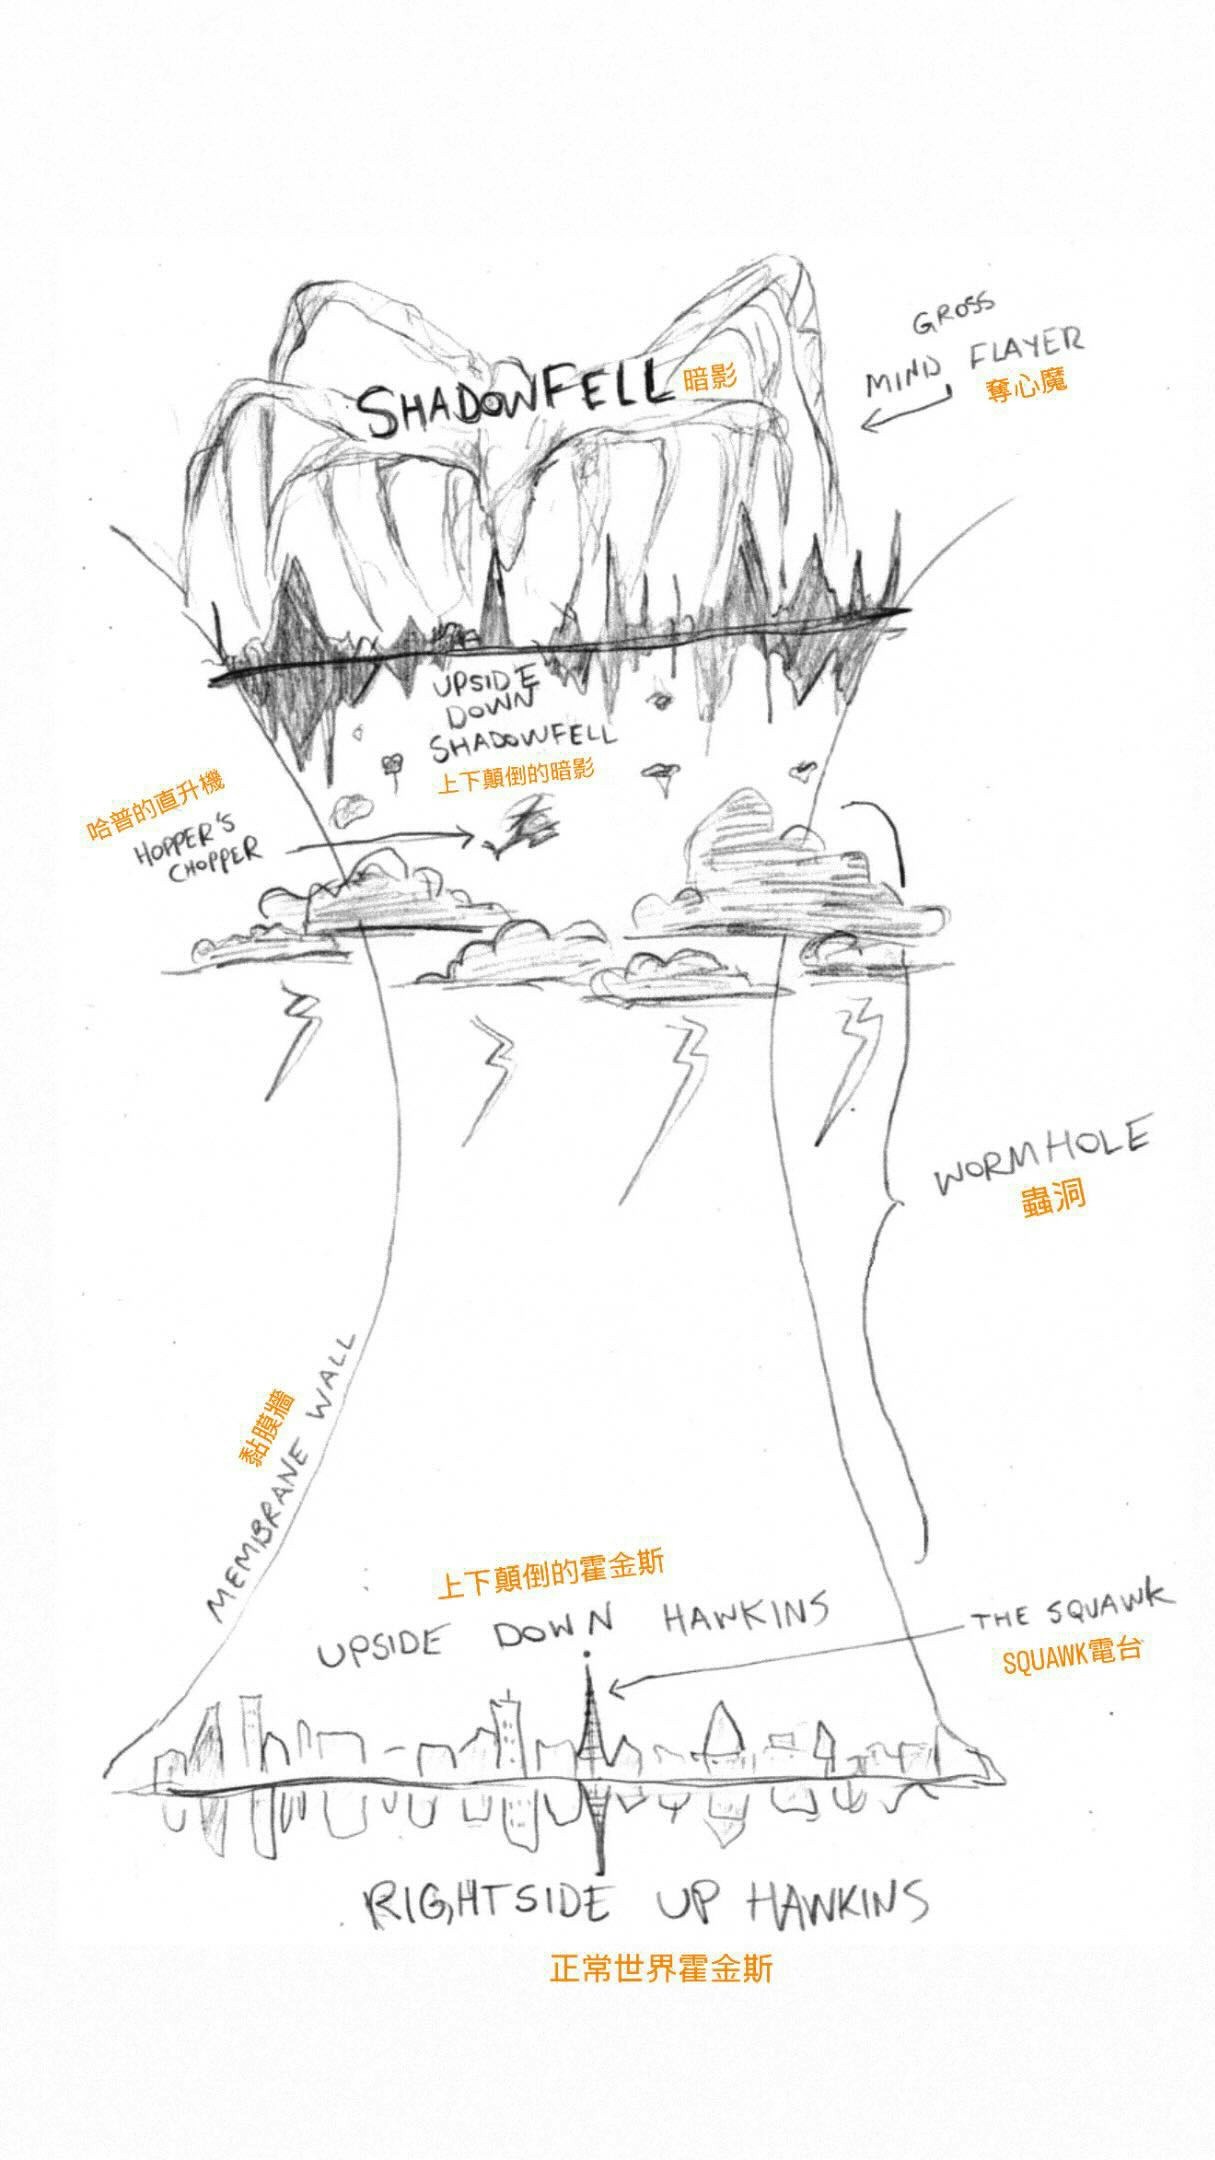 GROSS
MIND FLAYER
奪心魔
SHADOWFELL 暗影
UPSIDE
DOWN
SHADOWFELL
上下顛倒的暗影
哈普的直升機
HOPPER'S
CHOPPER
WORMHOLE
蟲洞
黏膜牆
MEMBRANE WALL
上下顛倒的霍金斯
UPSIDE DOWN HAWKINS
THE SQUAWK
SQUAWK電台
RIGHTSIDE UP HAWKINS
正常世界霍金斯